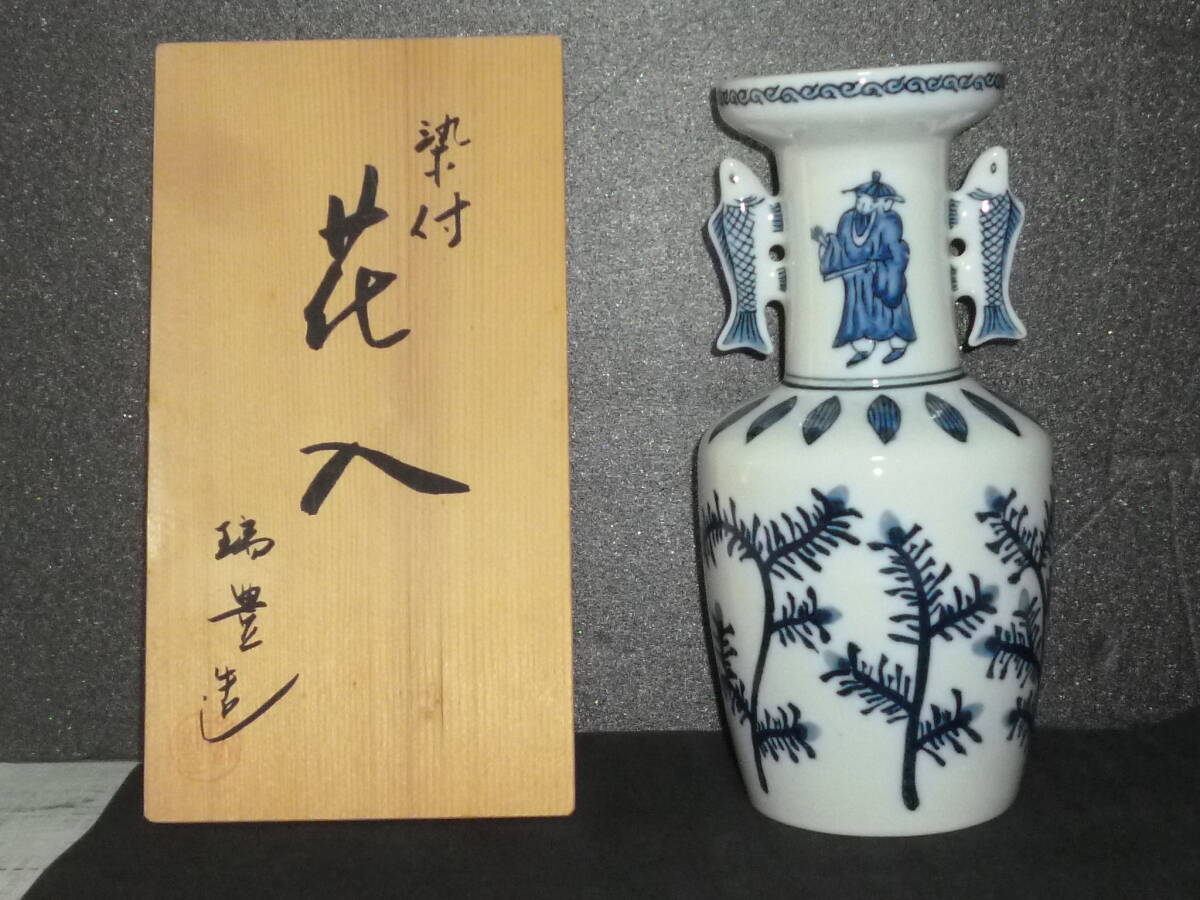 染付
花入
瑞豊造